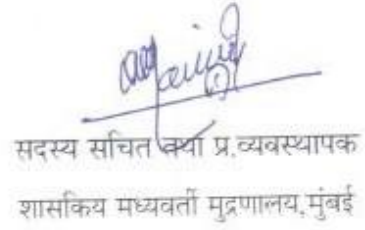 सदस्य सचित तथा प्र.व्यवस्थापक
शासकिय मध्यवर्ती मुद्रणालय,मुंबई